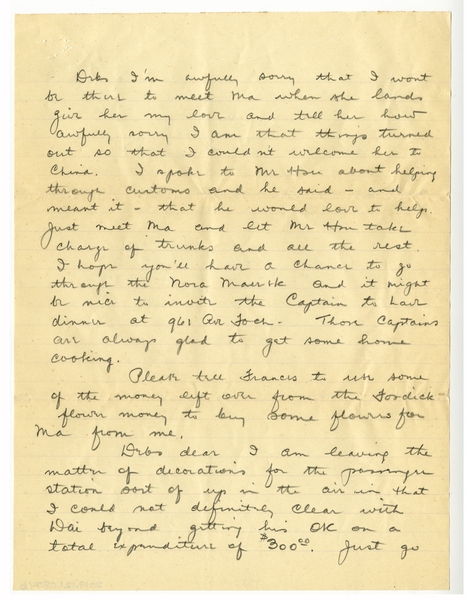 Debs I'm awfully sorry that I wont
be there to meet Ma when she lands
give her my love and tell her how
awfully sorry I am that things turned
out so that I couldn't welcome her to
China. I spoke to Mr Hsu about helping
through customs and he said - and
meant it - that he would love to help.
Just meet Ma and let Mr Hsu take
charge of trunks and all the rest.
I hope you'll have a chance to go
through the Nora Maersk and it might
be nice to invite the Captain to have
dinner at 961 Ave Foch. Those Captains
are always glad to get some home
cooking.
Please tell Francis to use some
of the money left over from the Fosdick
flower money to buy some flowers for
Ma from me.
Debs dear I am leaving the
matter of decorations for the passenger
station sort of up in the air in that
I could not definitely clear with
Dai beyond getting his OK on a
total expenditure of $300.00. Just go